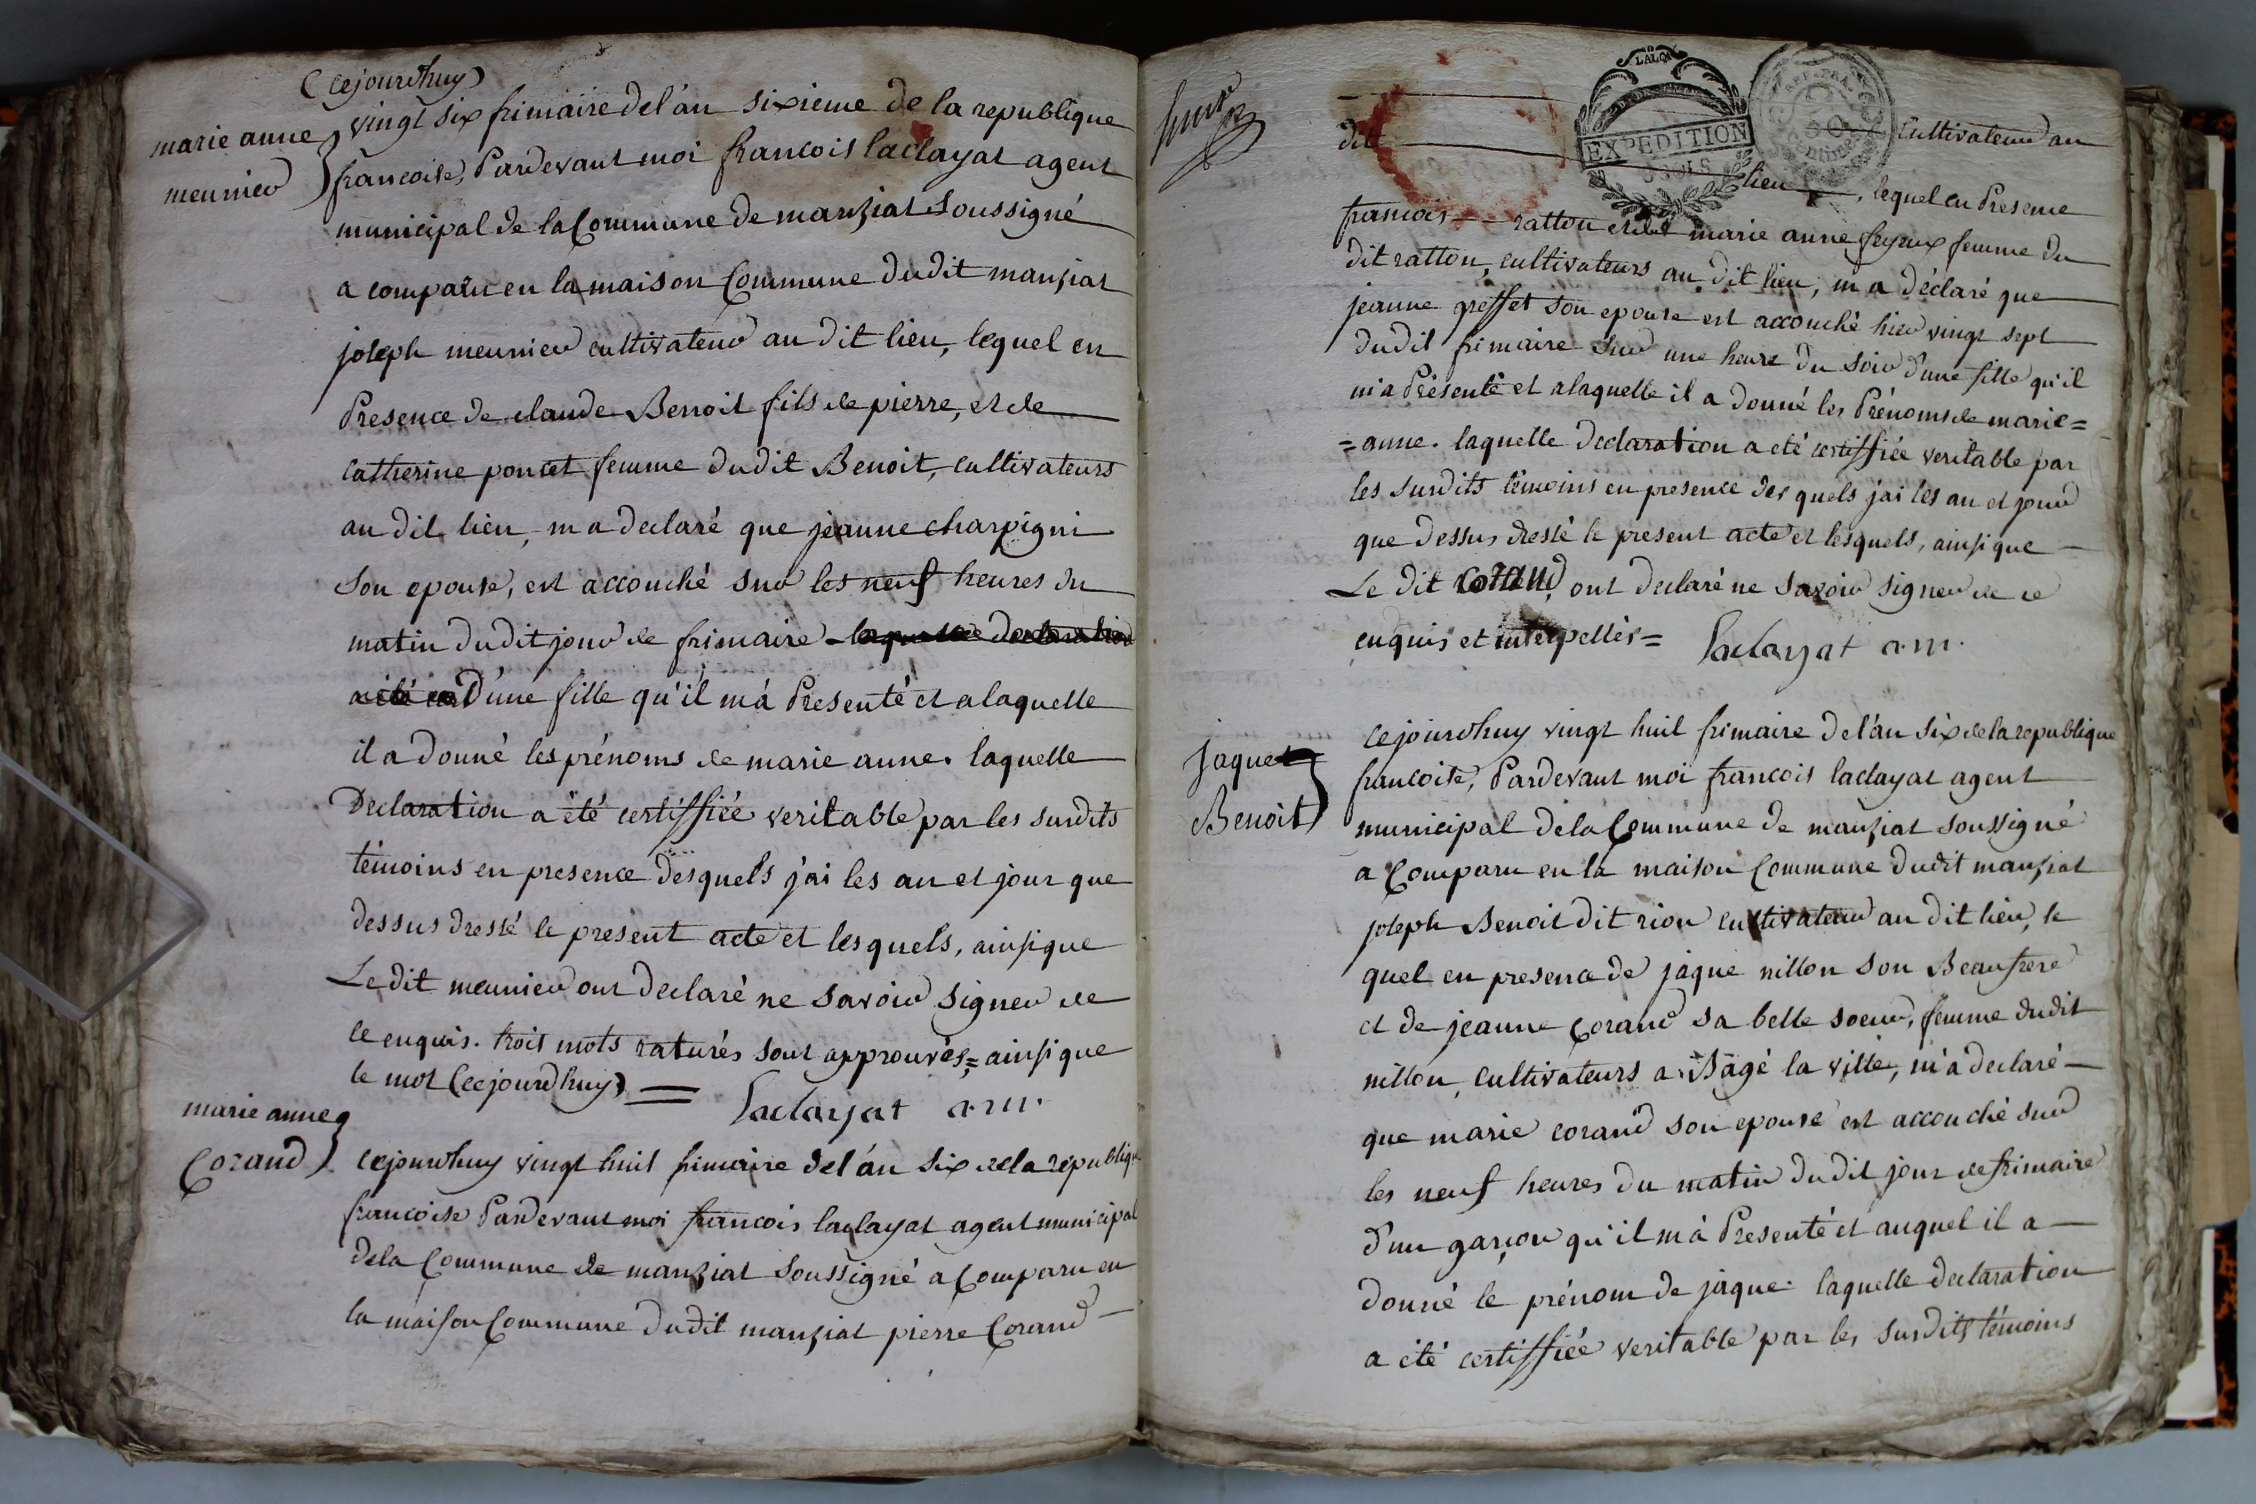 (cejourd'huy)
marie anne
meunier
vingt six frimaire del'an sixieme de la republique
francoise, Pardevant moi francois laclayat agent
municipal de la Commune de manziat soussigné
a comparu en la maison Commune dudit manziat
joseph meunier cultivateur au dit lieu, lequel en
Presence de claude Benoit fils de pierre, et de
catherine poncet femme dudit Benoit, cultivateurs
au dit lieu, m a declaré que jeanne charpigni
son epouse, est accouché sur les neuf heures du
matin dudit jour de frimaire laquelle declaration
a été d'une fille qu'il m'a Presenté et a laquelle
il a donné les prénoms de marie anne. laquelle
Declaration a été certiffiée veritable par les susdits
témoins en presence desquels j'ai les an et jour que
dessus dressé le present acte et lesquels, ainsi que
Le dit meunier ont declaré ne savoir signer de
ce enquis. trois mots raturés sont approuvés = ainsi que
le mot (cejourdhuy) =
laclayat a.m.
marie anne
Corand
cejourdhuy vingt huit frimaire del'an six dela republique
francoise Pardevant moi francois laclayat agent municipal
dela Commune de manziat soussigné a Comparu en
la maison Commune dudit manziat pierre Corand
LALOI
EXPEDITION
REP. FRA.
50
Centimes
dit cultivateur au
lieu, lequel en Presence
francois rattou et de marie anne feyeux femme du
dit rattou, cultivateurs au dit lieu, m a déclaré que
jeanne greffet son epouse est accouché hier vingt sept
dudit frimaire sur une heure du soir d'une fille qu'il
m'a Présenté et a laquelle il a donné les Prénoms de marie=
=anne. laquelle declaration a eté certiffiée veritable par
les susdits témoins en presence des quels j'ai les an et jour
que dessus dressé le present acte et lesquels, ainsi que
Le dit Corand, ont declaré ne savoir signer de ce
enquis et interpellés =
laclayat a.m.
Jaque
Benoit
cejourdhuy vingt huit frimaire del'an six de la republique
francoise, Pardevant moi francois laclayat agent
municipal dela Commune de manziat soussigné
a Comparu en la maison Commune dudit manziat
joseph Benoit dit rion cultivateur au dit lieu, le
quel en presence de jaque nillon son Beaufrere
et de jeanne Corand sa belle soeur, femme dudit
nillon, cultivateurs a Bâgé la ville, m'a declaré
que marie corand son epouse est accouché sur
les neuf heures du matin dudit jour de frimaire
d'un garçon qu'il m'a Presenté et auquel il a
donné le prénom de jaque. laquelle declaration
a eté certiffiée veritable par les susdits témoins